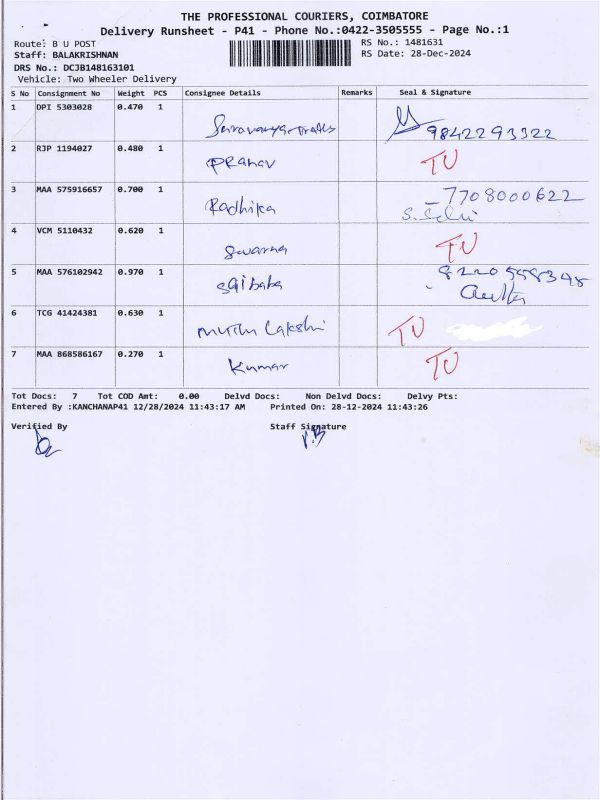 THE PROFESSIONAL COURIERS, COIMBATORE
Delivery Runsheet - P41 - Phone No.:0422-3505555 - Page No.:1
Route: B U POST RS No.: 1481631
Staff: BALAKRISHNAN RS Date: 28-Dec-2024
DRS No.: DCJB148163101
Vehicle: Two Wheeler Delivery
S No Consignment No Weight PCS Consignee Details Remarks Seal & Signature
1 DPI 5303028 0.470 1
Saravanya Trades 9842293322
2 RJP 1194027 0.480 1
PRanav TU
3 MAA 575916657 0.700 1 7708000622
Radhika S. Selvi
4 VCM 5110432 0.620 1
Swarna TU
5 MAA 576102942 0.970 1 8220558348
saibaba
6 TCG 41424381 0.630 1
Muthu Lakshi TU
7 MAA 868586167 0.270 1
Kumar TU
Tot Docs: 7 Tot COD Amt: 0.00 Delvd Docs: Non Delvd Docs: Delvy Pts:
Entered By :KANCHANAP41 12/28/2024 11:43:17 AM Printed On: 28-12-2024 11:43:26
Verified By Staff Signature
V.B